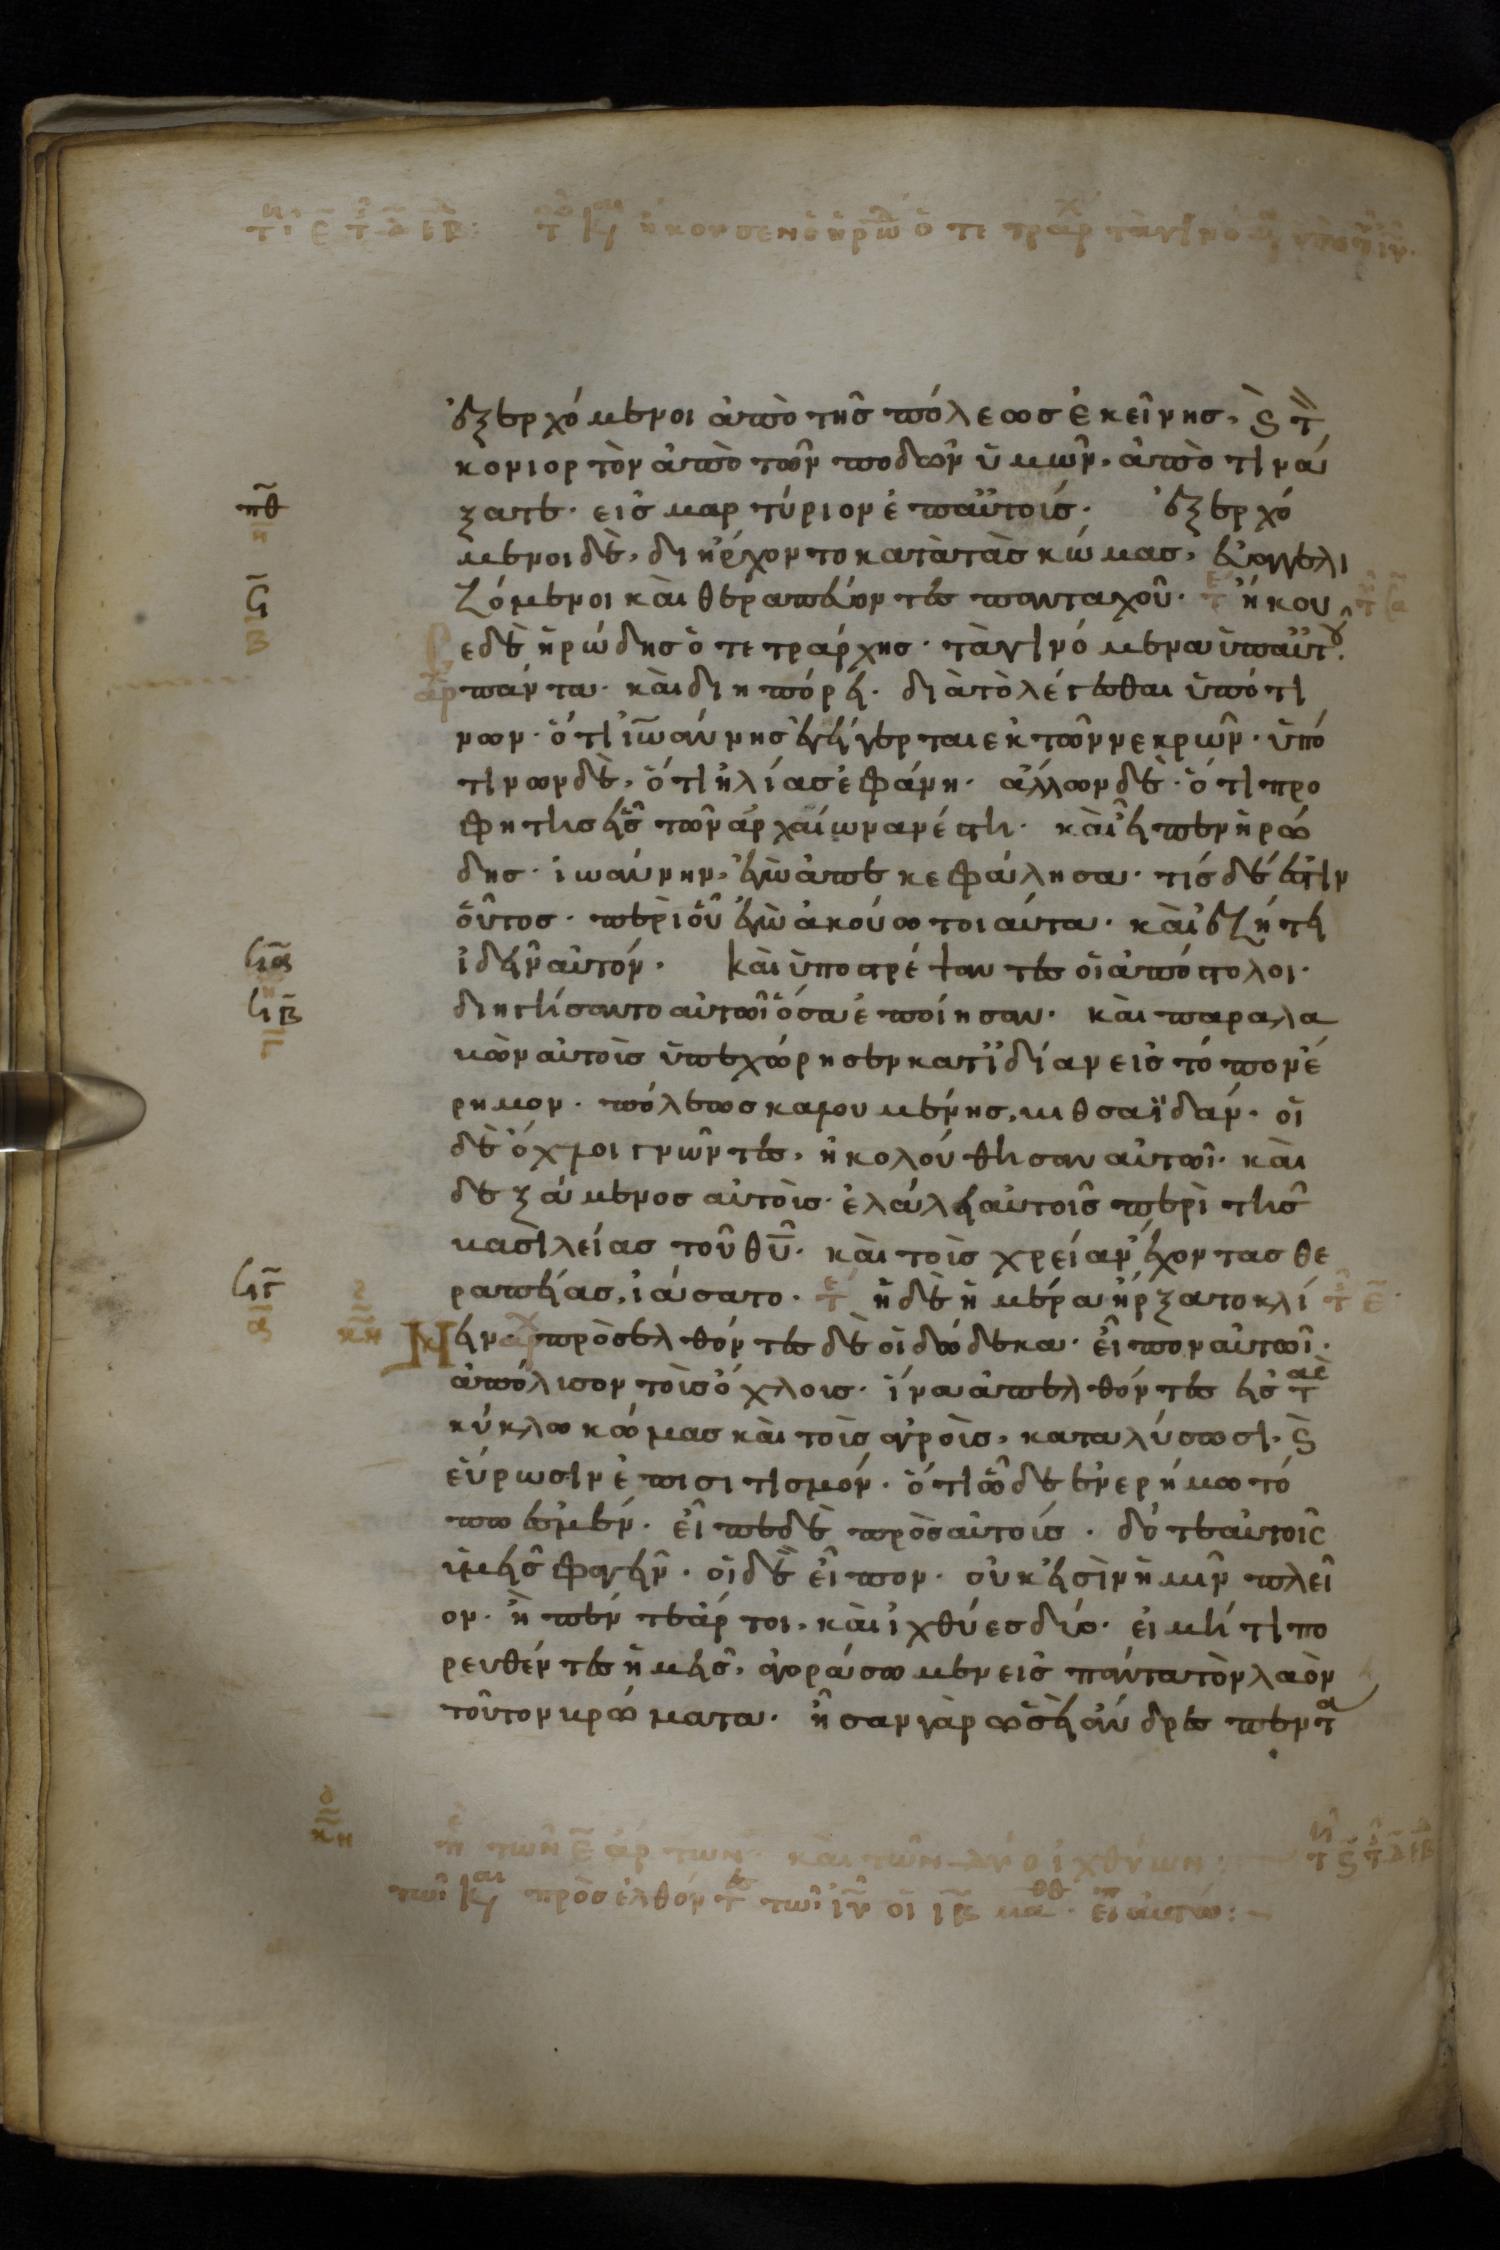 ἐξερχόμενοι ἀπὸ τῆς πόλεωσ ἐκείνησ, ϗ τ
κονιορτὸν ἀπὸ τῶν ποδῶν ὑμῶν, ἀποτινά
ξατε· εἰσ μαρτύριον ἐπαὐτούσ· ἐξερχό
μενοι δὲ, διήρχοντο κατὰ τὰσ κώμασ, εὐαγγελι
ζόμενοι καὶ θεραπεύοντεσ πανταχοῦ· ἤκου
σε δὲ ἡρώδησ ὁ τετράρχησ· τὰ γινόμενα ὑπαὐτοῦ
πάντα· καὶ διηπόρει· διὰ τὸ λέγεσθαι ὑπό τι
νων· ὅτι ἰωάννησ ἐγήγερται ἐκ τῶν νεκρῶν· ὑπό
τινων δὲ, ὅτι ἠλίασ ἐφάνη· ἄλλων δὲ· ὅτι προ
φήτησ εἷσ τῶν ἀρχαίων ἀνέστη· καὶ εἶπεν ἡρώ
δησ· ἰωάννην, ἐγὼ ἀπεκεφάλησα· τίσ δέ ἐστιν
οὗτοσ· περὶ οὗ ἐγὼ ἀκούω τοιαύτα· καὶ ἐζήτει
ἰδεῖν αὐτόν· καὶ ὑποστρέψαντεσ οἱ ἀπόστολοι·
διηγήσαντο αὐτῶι ὅσα ἐποίησαν· καὶ παραλα
βὼν αὐτοὺσ ὑπεχώρησεν κατϊδίαν εἰσ τόπον ἔ
ρημον· πόλεωσ καλουμένησ, βηθσαϊδάν· οἱ
δὲ ὄχλοι γνῶντεσ, ἠκολούθησαν αὐτῶι· καὶ
δεξάμενοσ αὐτοὺσ· ἐλάλει αὐτοῖσ περὶ τῆσ
βασιλείασ τοῦ θῦ· καὶ τοὺσ χρείαν ἔχοντασ θε
ραπείασ, ἰάσατο· ἡ δὲ ἡμέρα ἤρξατο κλί
νειν· προσελθόντεσ δὲ οἱ δώδεκα· εἶπον αὐτῶι·
ἀπόλυσον τοὺσ ὄχλουσ· ἵνα ἀπελθόντεσ εἰσ τ
κύκλω κώμασ καὶ τοὺσ ἀγροὺσ, καταλύσωσι, ϗ
εὕρωσιν ἐπισιτισμόν· ὅτι ὧδε ἐν ἐρήμω τό
πω ἐσμέν· εἶπε δὲ πρὸσ αὐτούσ· δότε αὐτοῖσ
ὑμεῖσ φαγεῖν· οἱ δὲ εἶπον· οὐκ εἰσὶν ἡμῖν πλεῖ
ον· ἢ πέντε ἄρτοι, καὶ ἰχθύεσ δύο· εἰ μή τι πο
ρευθέντεσ ἡμεῖσ, ἀγοράσωμεν εἰσ πάντα τὸν λαὸν
τοῦτον βρώματα· ἦσαν γὰρ ὡσεὶ ἄνδρεσ πεντα
τῶν ε ἄρτων· καὶ τῶν δύο ἰχθύων: